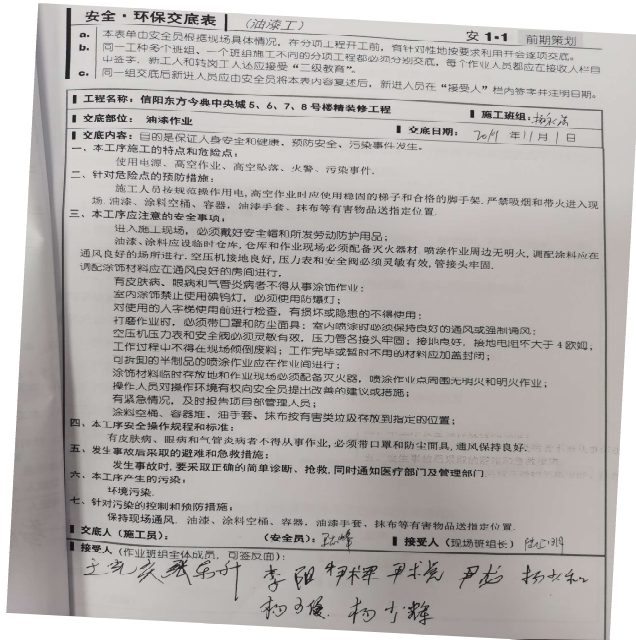 安全·环保交底表 （油漆工） 安1·1 前期策划
a. 本表单由安全员根据现场具体情况，在分项工程开工前，有针对性地按要求利用开会逐项交底。
b. 同一工种多个班组、一个班组施工不同的分项工程都必须分别交底，每个作业人员都应在接收人栏目中签字。新工人和转岗工人还应接受“二级教育”。
c. 同一组交底后新进人员应由安全员将本表内容复述后，新进人员在“接受人”栏内签字并注明日期。
工程名称：信阳东方今典中央城5、6、7、8号楼精装修工程 施工班组：
交底部位： 油漆作业 交底日期： 2011 年 11 月 1 日
交底内容：目的是保证人身安全和健康，预防安全、污染事件发生。
一、本工序施工的特点和危险点：
使用电源、高空作业、高空坠落、火警、污染事件.
二、针对危险点的预防措施：
施工人员按规范操作用电,高空作业时应使用稳固的梯子和合格的脚手架.严禁吸烟和带火进入现
场.油漆、涂料空桶、容器，油漆手套、抹布等有害物品送指定位置.
三、本工序应注意的安全事项：
进入施工现场，必须戴好安全帽和所发劳动防护用品；
油漆、涂料应设临时仓库,仓库和作业现场必须配备灭火器材.喷涂作业周边无明火,调配涂料应在
通风良好的场所进行.空压机接地良好,压力表和安全阀必须灵敏有效,管接头牢固.
调配涂饰材料应在通风良好的房间进行,
有皮肤病、眼病和气管炎病者不得从事涂饰作业；
室内涂饰禁止使用碘钨灯，必须使用防爆灯；
对使用的人字梯使用前进行检查，有损坏或隐患的不得使用；
打磨作业时，必须带口罩和防尘面具；室内喷涂时必须保持良好的通风或强制通风；
空压机压力表和安全阀必须灵敏有效，压力管各接头牢固；接地良好，接地电阻不大于4欧姆；
工作过程中不得在现场倾倒废料；工作完毕或暂时不用的材料应加盖封闭；
可拆卸的半制品的喷涂作业应在作业间进行；
涂饰材料临时存放地和作业现场必须配备灭火器，喷涂作业点周围无明火和明火作业；
操作人员对操作环境有权向安全员提出改善的建议或措施；
有紧急情况，及时报告项目部管理人员；
涂料空桶、容器堆、油手套、抹布按有害类垃圾存放到指定的位置；
四、本工序安全操作规程和标准：
有皮肤病、眼病和气管炎病者不得从事作业,必须带口罩和防尘面具,通风保持良好.
五、发生事故后采取的避难和急救措施：
发生事故时,要采取正确的简单诊断、抢救,同时通知医疗部门及管理部门.
六、本工序产生的污染：
环境污染.
七、针对污染的控制和预防措施：
保持现场通风. 油漆、涂料空桶、容器，油漆手套、抹布等有害物品送指定位置.
交底人（施工员）： （安全员）： 接受人（现场班组长）
接受人（作业班组全体成员，可签反面）：
李阳 尹术军 尹术亮 尹龙
杨少辉